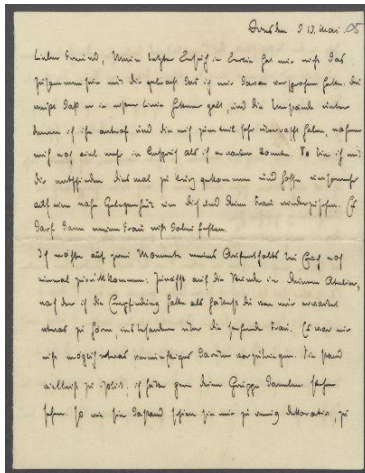 Dresden d 13. Mai. 05
Lieber Freund, Mein letzter Besuch in Berlin hat mir nicht das
Zusammensein mit dir gebracht das ich mir davon versprochen hatte. Du
weißt daß es in erster Linie galt, und die Umstände
denen ich ihn antraf und die mich zum teil sehr überrascht haben, nahmen
mich noch viel mehr in Anspruch als ich erwarten konnte. So bin ich mit
dir entschieden diesmal zu kurz gekommen und hoffe nunmehr
auf eine nahe Gelegenheit um dich und deine Frau wiederzusehen. Es
darf dann meine Frau nicht dabei fehlen.
Ich möchte auf zwei Momente meines Aufenthalts bei Euch noch
einmal zurückkommen: Zunächst auf die Stunde in deinem Atelier,
nach der ich die Empfindung hatte als hättest du von mir erwartet
etwas zu hören, insbesondere über die Frau. Es war mir
nicht möglich etwas vernünftiges darüber vorzubringen. Sie stand
vielleicht zu isoliert. ich hätte gern deine Gruppe daneben stehen
sehen. So wie sie dastand schien sie mir zu wenig dekorativ, zu